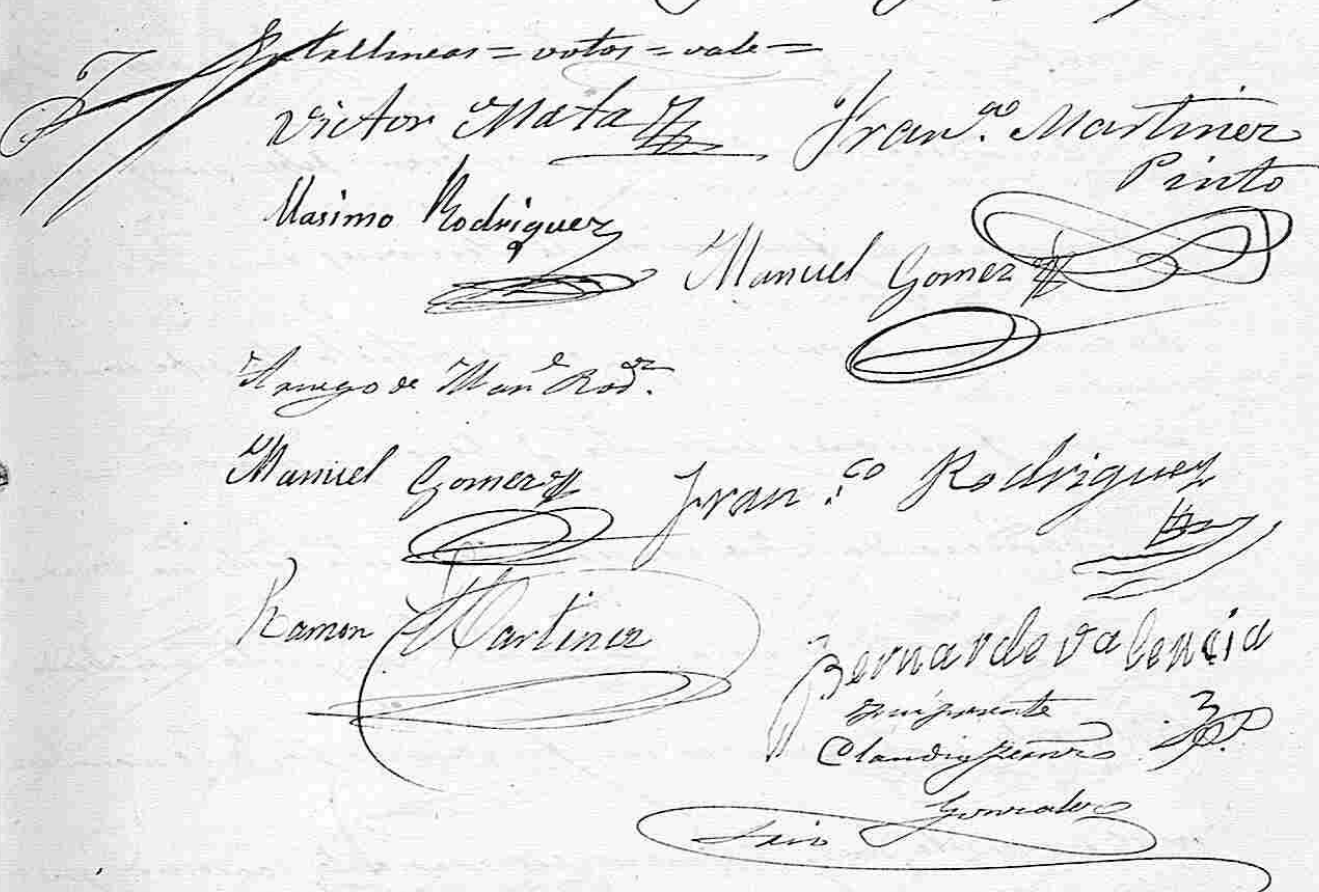 Entrelineas = votos = vale =
Victor Mata
Fran.co Martinez
Pinto
Masimo Rodriguez
Manuel Gomez
A ruego de Man.l Rod.z
Manuel Gomez
Fran.co Rodriguez
Ramon Martinez
Bernarde Valencia
Gonzalez
Luis